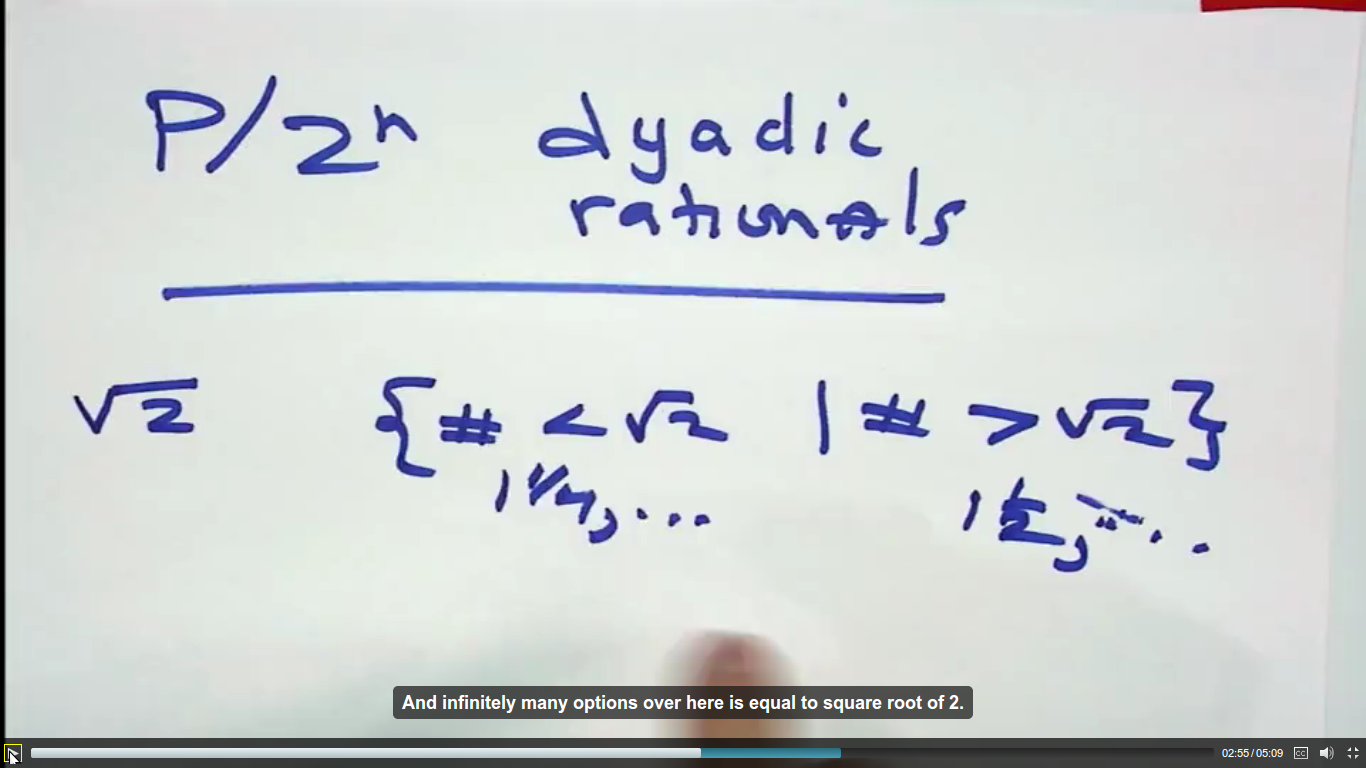 P/2ⁿ dyadic
rationals
√2 {# < √2 | # > √2}
1 1/4, ... 1 1/2, ...
And infinitely many options over here is equal to square root of 2.
02:55/05:09 CC